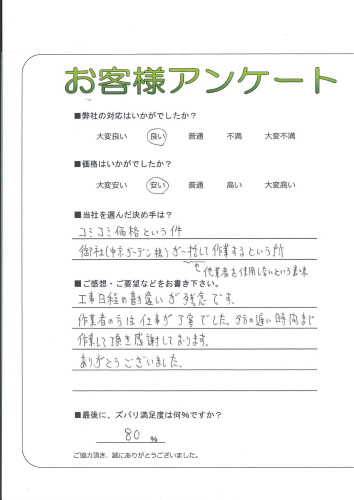 お客様アンケート
■弊社の対応はいかがでしたか？
大変良い 良い 普通 不満 大変不満
■価格はいかがでしたか？
大変安い 安い 普通 高い 大変高い
■当社を選んだ決め手は？
コミコミ価格という件
御社(中京ガーデン株)が一括して作業するという所
他業者を使用しないという意味
■ご感想・ご要望などをお書き下さい。
工事日程の勘違いが残念です。
作業者の方は仕事が丁寧でした。夕方の遅い時間まで
作業して頂き感謝しております。
ありがとうございました。
■最後に、ズバリ満足度は何％ですか？
80 %
ご協力頂き、誠にありがとうございました。